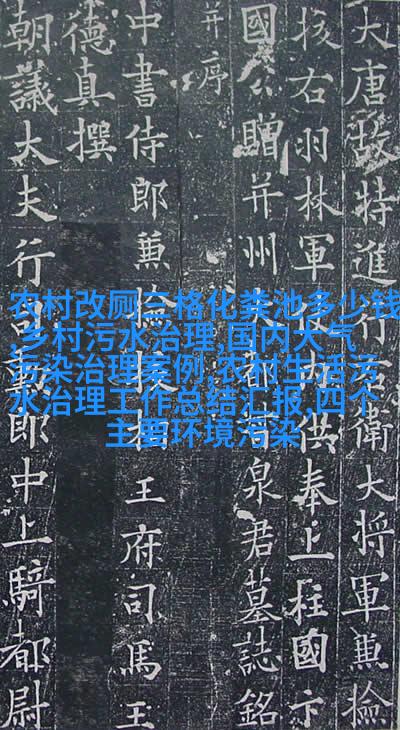 大唐故特進行右衛大將軍兼檢
校右羽林軍仗內供奉上柱國卞
國公贈并州大都督泉君墓誌銘
并序
中書侍郎兼檢校相王府司馬王
德真撰
朝議大夫行司勳郎中上騎都尉
农村改厕三格化粪池多少钱
,乡村污水治理,国内大气
污染治理案例,农村生活污
水治理工作总结汇报,四个
主要环境污染